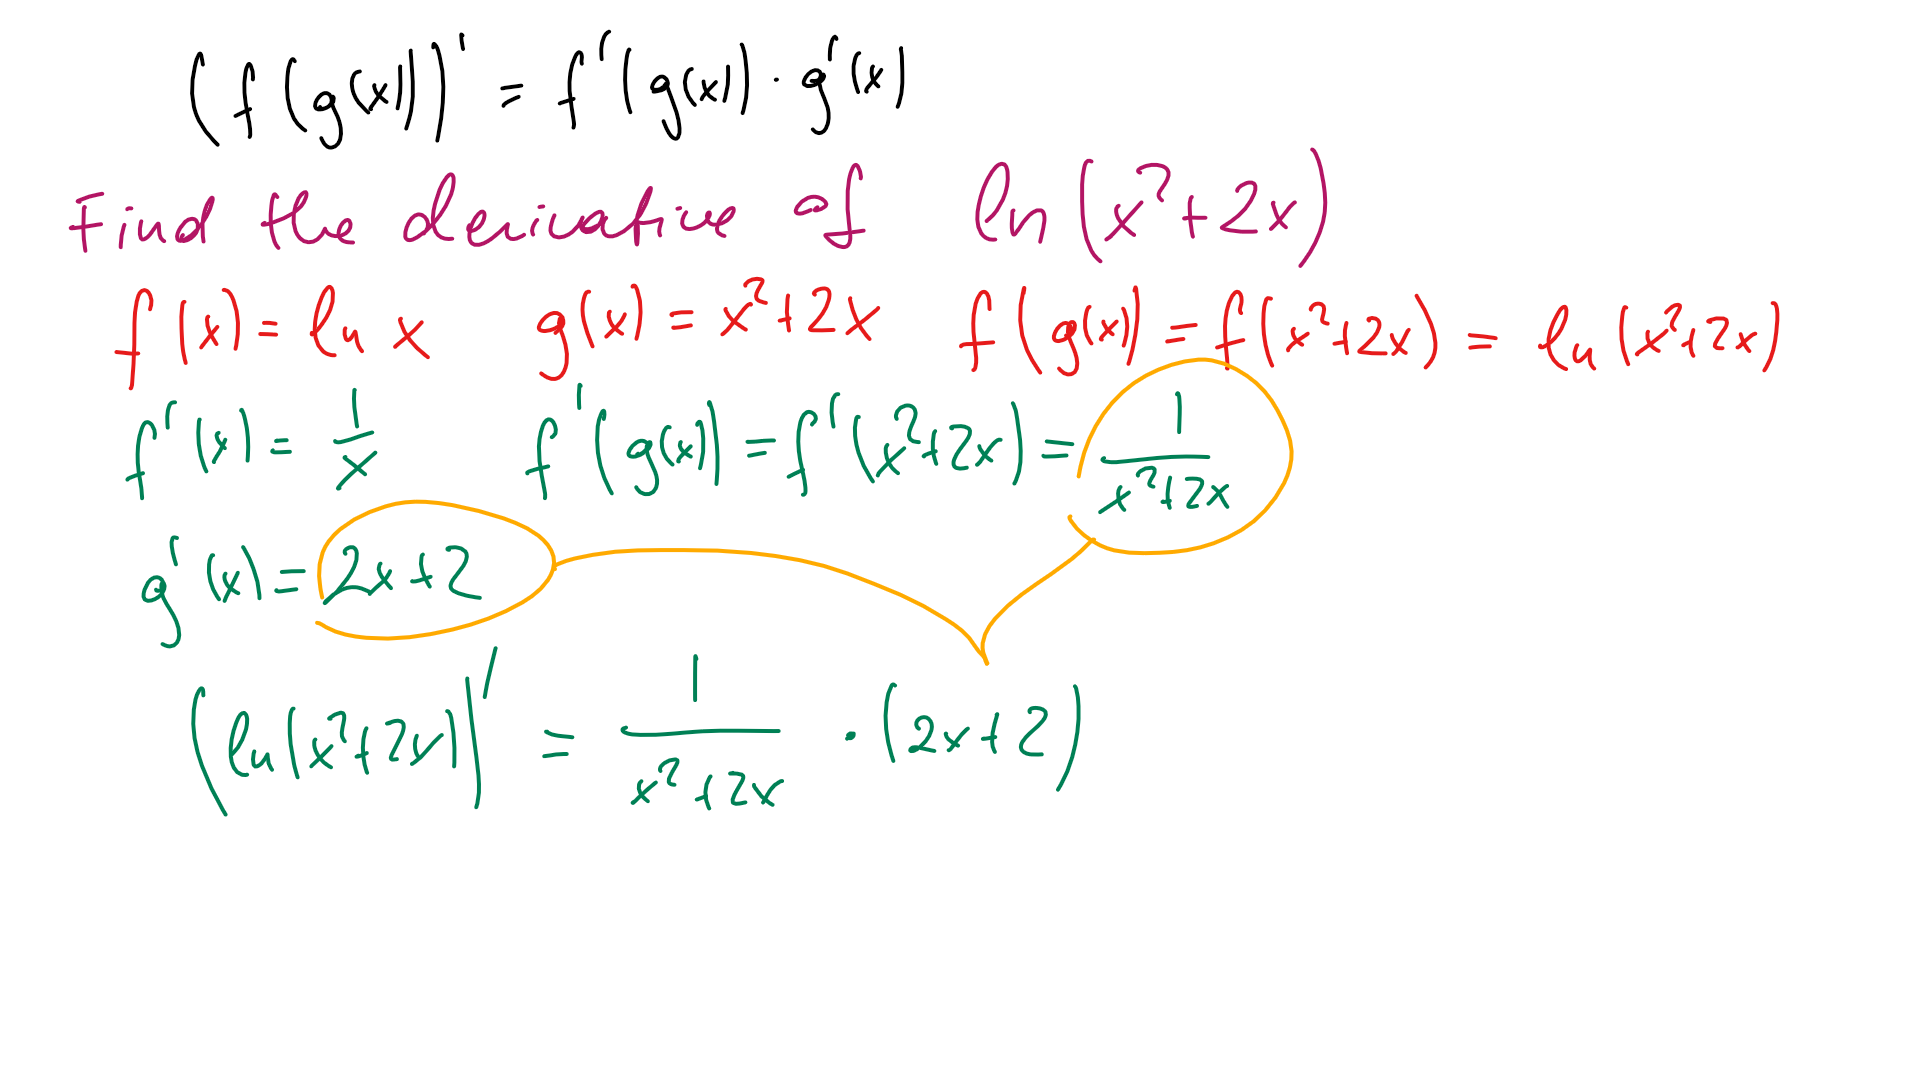 (f(g(x)))' = f'(g(x)) · g'(x)
Find the derivative of ln(x²+2x)
f(x) = ln x g(x) = x²+2x f(g(x)) = f(x²+2x) = ln(x²+2x)
f'(x) = 1/x f'(g(x)) = f'(x²+2x) = 1/(x²+2x)
g'(x) = 2x+2
(ln(x²+2x))' = 1/(x²+2x) · (2x+2)